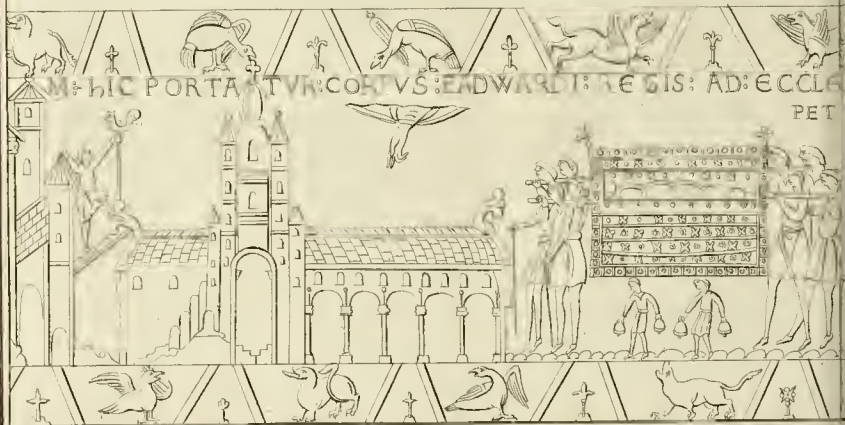 M: hIC PORTATVR: CORPVS: EADWARDI: REGIS: AD: ECCLE
PET